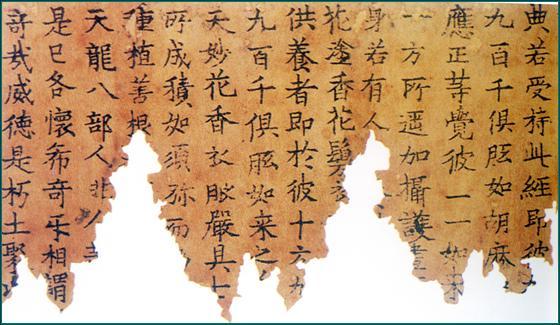 典若受持此經即彼
九百千俱胝如胡麻
應正等覺彼一一如来
一方所遥加攝護
身若有人
花塗香花鬘衣
供養者即於彼十六
九百千俱胝如来之
天妙花香衣服嚴具
所成積如須弥而
種植善根
天龍八部人非人
是已各懷希奇互相謂
奇哉威德是朽土聚